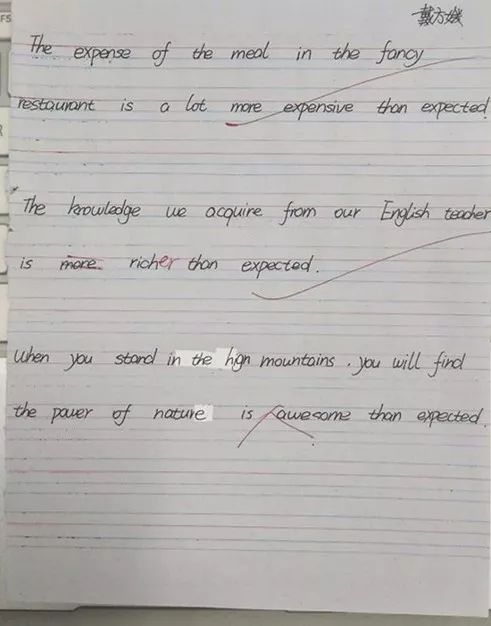 戴方娥
The expense of the meal in the fancy
restaurant is a lot more expensive than expected.
The knowledge we acquire from our English teacher
is more richer than expected.
When you stand in the hign mountains, you will find
the power of nature is awesome than expected.